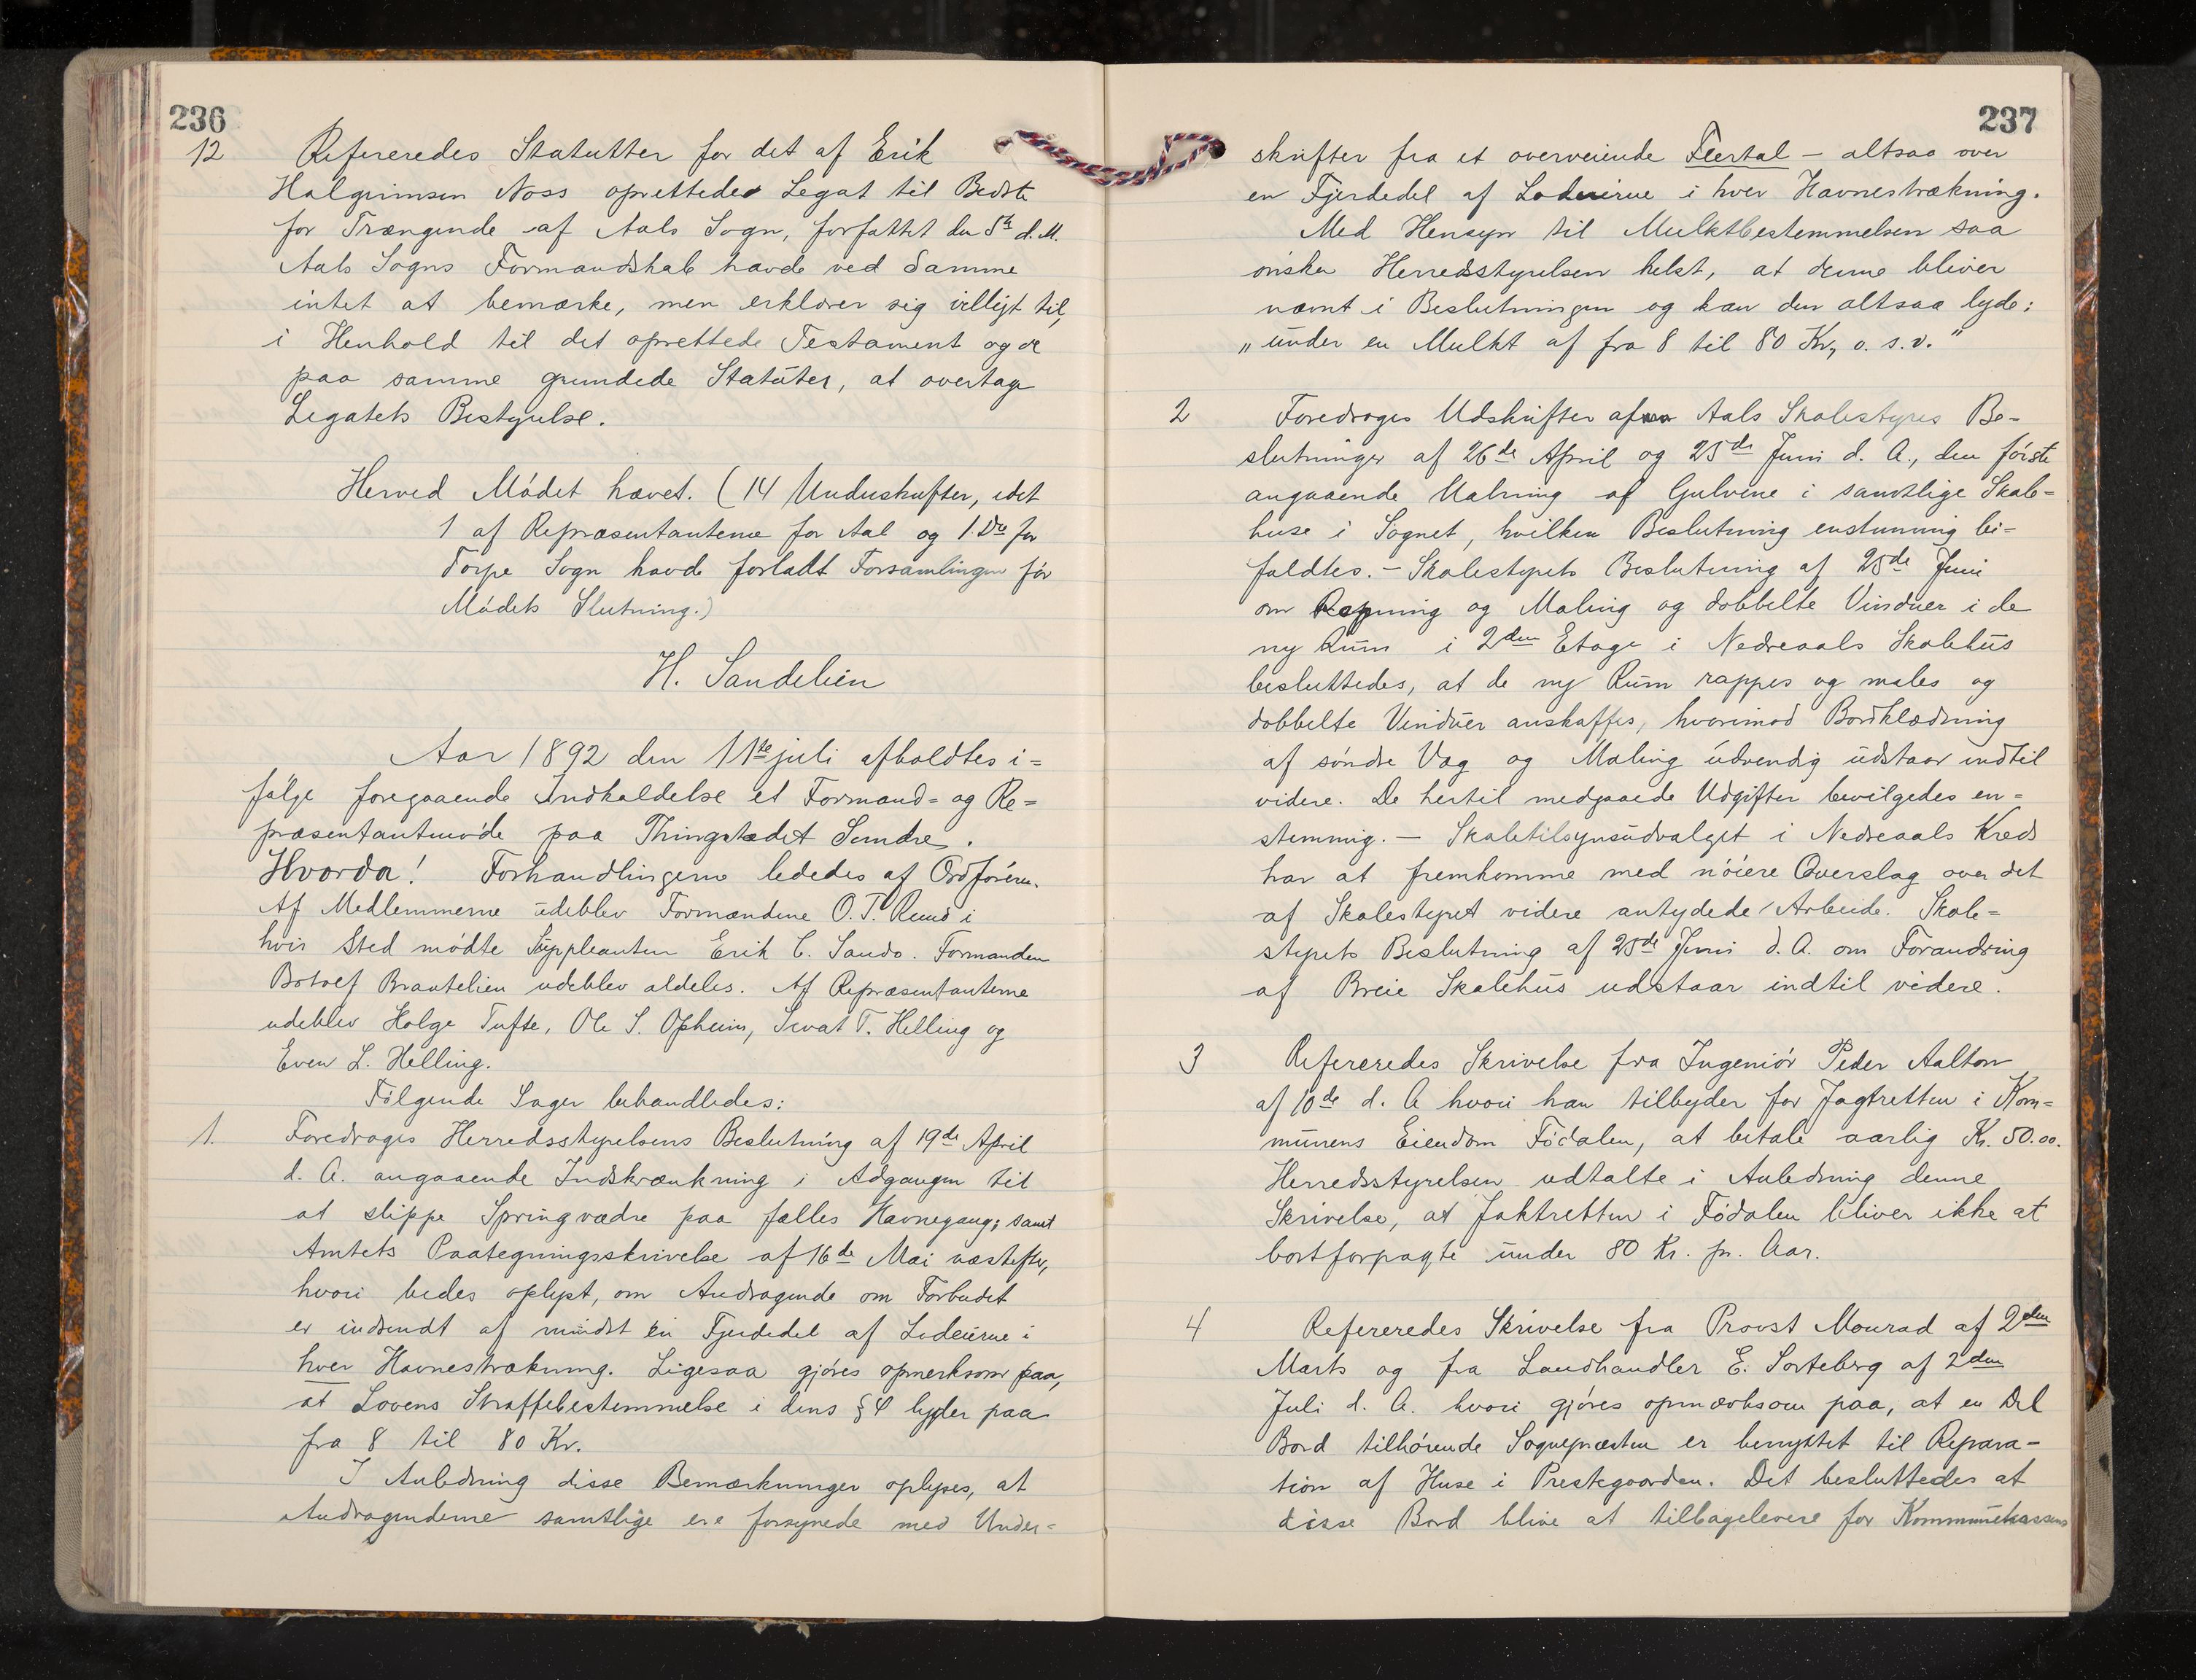 236
12 Refereredes Statutter for det af Erik
Halgrimsen Noss oprettedes Legat til Bedste
for Trængende af Aals Sogn, forfattet den 5te d. M.
Aals Sogns Formandskab havde ved Samme
intet at bemærke, men erklærer sig villigt til,
i Henhold til det oprettede Testament og de
paa samme grundede Statuter, at overtage
Legatets Bestyrelse.
Herved Mødet hævet. (14 Underskrifter, idet
1 af Repræsentanterne for Aal og 1 Do for
Torpe Sogn havde forladt Forsamlingen før
Mødets Slutning.)
H. Sandelien
Aar 1892 den 11te juli afholdtes i=
følge foregaaende Indkaldelse et Formand= og Re=
præsentantmøde paa Thingstedet Sundre.
Hvorda! Forhandlingerne lededes af Ordføreren.
Af Medlemmerne udeblev Formændene O. T. Rund i
hvis Sted mødte Suppleanten Erik C. Sando. Formanden
Botolf Brautelien udeblev aldeles. Af Repræsentanterne
udeblev Holge Tufte, Ole S. Opheim, Sevat T. Helling og
Even L. Helling.
Følgende Sager behandledes:
1. Foredroges Herredsstyrelsens Beslutning af 19de April
d. A. angaaende Indskrænkning i Adgangen til
at slippe Springvædre paa fælles Havnegang; samt
Amtets Paategningsskrivelse af 16de Mai næstefter,
hvori bedes oplyst, om Andragende om Forbudet
er indsendt af mindst en Fjerdedel af Lodeierne i
hver Havnestrækning. Ligesaa gjøres opmerksom paa,
at Lovens Straffebestemmelse i dens § 4 lyder paa
fra 8 til 80 Kr.
I Anledning disse Bemærkninger oplyses, at
Andragenderne samtlige ere forsynede med Under=
237
skrifter fra et overveiende Fleertal – altsaa over
en Fjerdedel af Lodeierne i hver Havnestrækning.
Med Hensyn til Mulktbestemmelsen saa
ønsker Herredsstyrelsen helst, at denne bliver
nævnt i Beslutningen og kan den altsaa lyde:
„under en Mulkt af fra 8 til 80 Kr, o. s. v."
2 Foredroges Udskrifter af Aals Skolestyres Be=
slutninger af 26de April og 25de Juni d. A., den første
angaaende Malning af Gulvene i samtlige Skole=
huse i Sognet, hvilken Beslutning enstemmig bi=
faldtes. – Skolestyrets Beslutning af 25de Juni
om Rapning og Maling og dobbelte Vinduer i de
ny Rum i 2den Etage i Nedreaals Skolehus
besluttedes, at de ny Rum rappes og males og
dobbelte Vinduer anskaffes, hvorimod Bordklædning
af søndre Væg og Maling udvendig udstaar indtil
videre. De hertil medgaaede Udgifter bevilgedes en=
stemmig. – Skoletilsynsudvalget i Nedreaals Kreds
har at fremkomme med nøiere Overslag over det
af Skolestyret videre antydede Arbeide. Skole=
styrets Beslutning af 25de Juni d. A. om Forandring
af Breie Skolehus udstaar indtil videre.
3 Refereredes Skrivelse fra Ingeniør Peder Aalton
af 10de d. A hvori han tilbyder for Jagtretten i Kom=
munens Eiendom Fødalen, at betale aarlig Kr. 50.00.
Herredsstyrelsen udtalte i Anledning denne
Skrivelse, at Jaktretten i Fødalen bliver ikke at
bortforpagte under 80 Kr. pr. Aar.
4 Refereredes Skrivelse fra Provst Monrad af 2den
Marts og fra Landhandler E. Sorteberg af 2den
Juli d. A. hvori gjøres opmærksom paa, at en Del
Bord tilhørende Sognepræsten er benyttet til Repara-
tion af Huse i Prestegaarden. Det besluttedes at
disse Bord blive at tilbagelevere for Kommunekassens